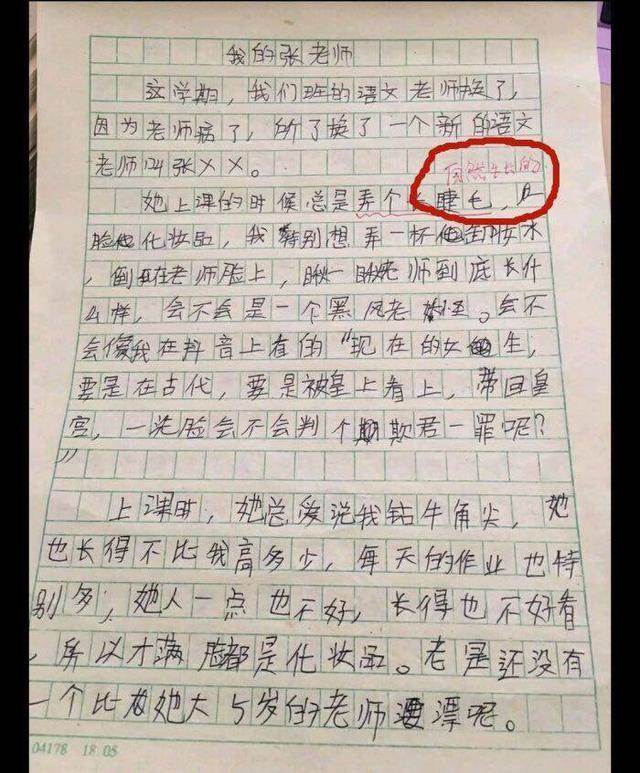 我的张老师
这学期，我们班的语文老师换了，
因为老师病了，所了换了一个新的语文
老师叫张××。
自然生长的
她上课的时候总是弄个长睫毛，
脸化妆品，我特别想弄一杯卸妆水
，倒在老师脸上，瞅一瞅老师到底长什
么样，会不会是一个黑风老妖怪。会不
会像我在抖音上看的“现在的女生，
要是在古代，要是被皇上看上，带回皇
宫，一洗脸会不会判个欺君一罪呢？
”
上课时，她总爱说我钻牛角尖，她
也长得不比我高多少，每天的作业也特
别多，她人一点也不好，长得也不好看
，所以才满脸都是化妆品。老是还没有
一个比她大5岁的老师漂呢。
04178 18 03